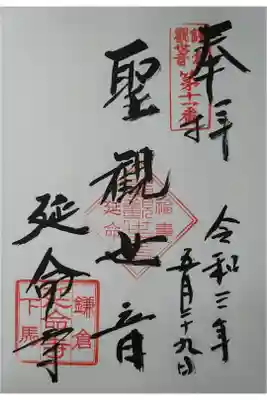 奉拝
鎌倉
觀世音
第十一番
令和三年
五月二十九日
聖觀世音
福壽
延命
延命寺
鎌倉
延命寺
下馬